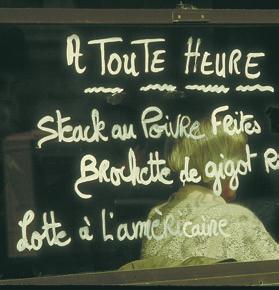 A TOUTE HEURE
Steack au Poivre Frites
Brochette de gigot R
Lotte à L'amèricaine